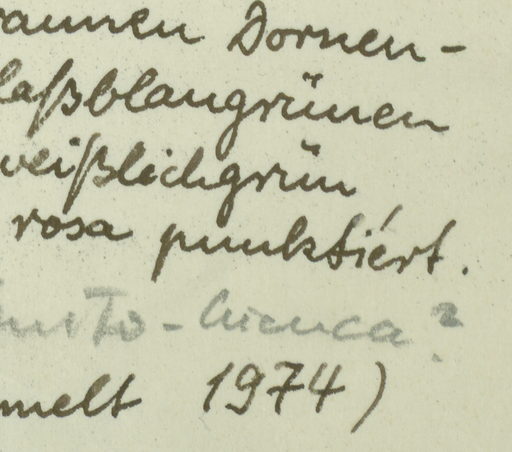 raunen Dornen-
laßblaugrünen
weißlichgrün
rosa punktiért.
?
melt 1974)